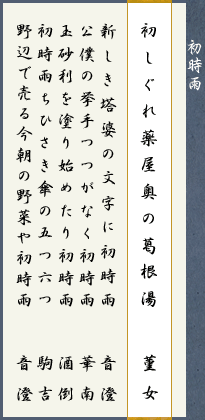 初時雨
初しぐれ薬屋奥の葛根湯 菫女
新しき塔婆の文字に初時雨 音澄
公僕の挙手つつがなく初時雨 華南
玉砂利を塗り始めたり初時雨 酒倒
初時雨ちひさき傘の五つ六つ 駒吉
野辺で売る今朝の野菜や初時雨 音澄